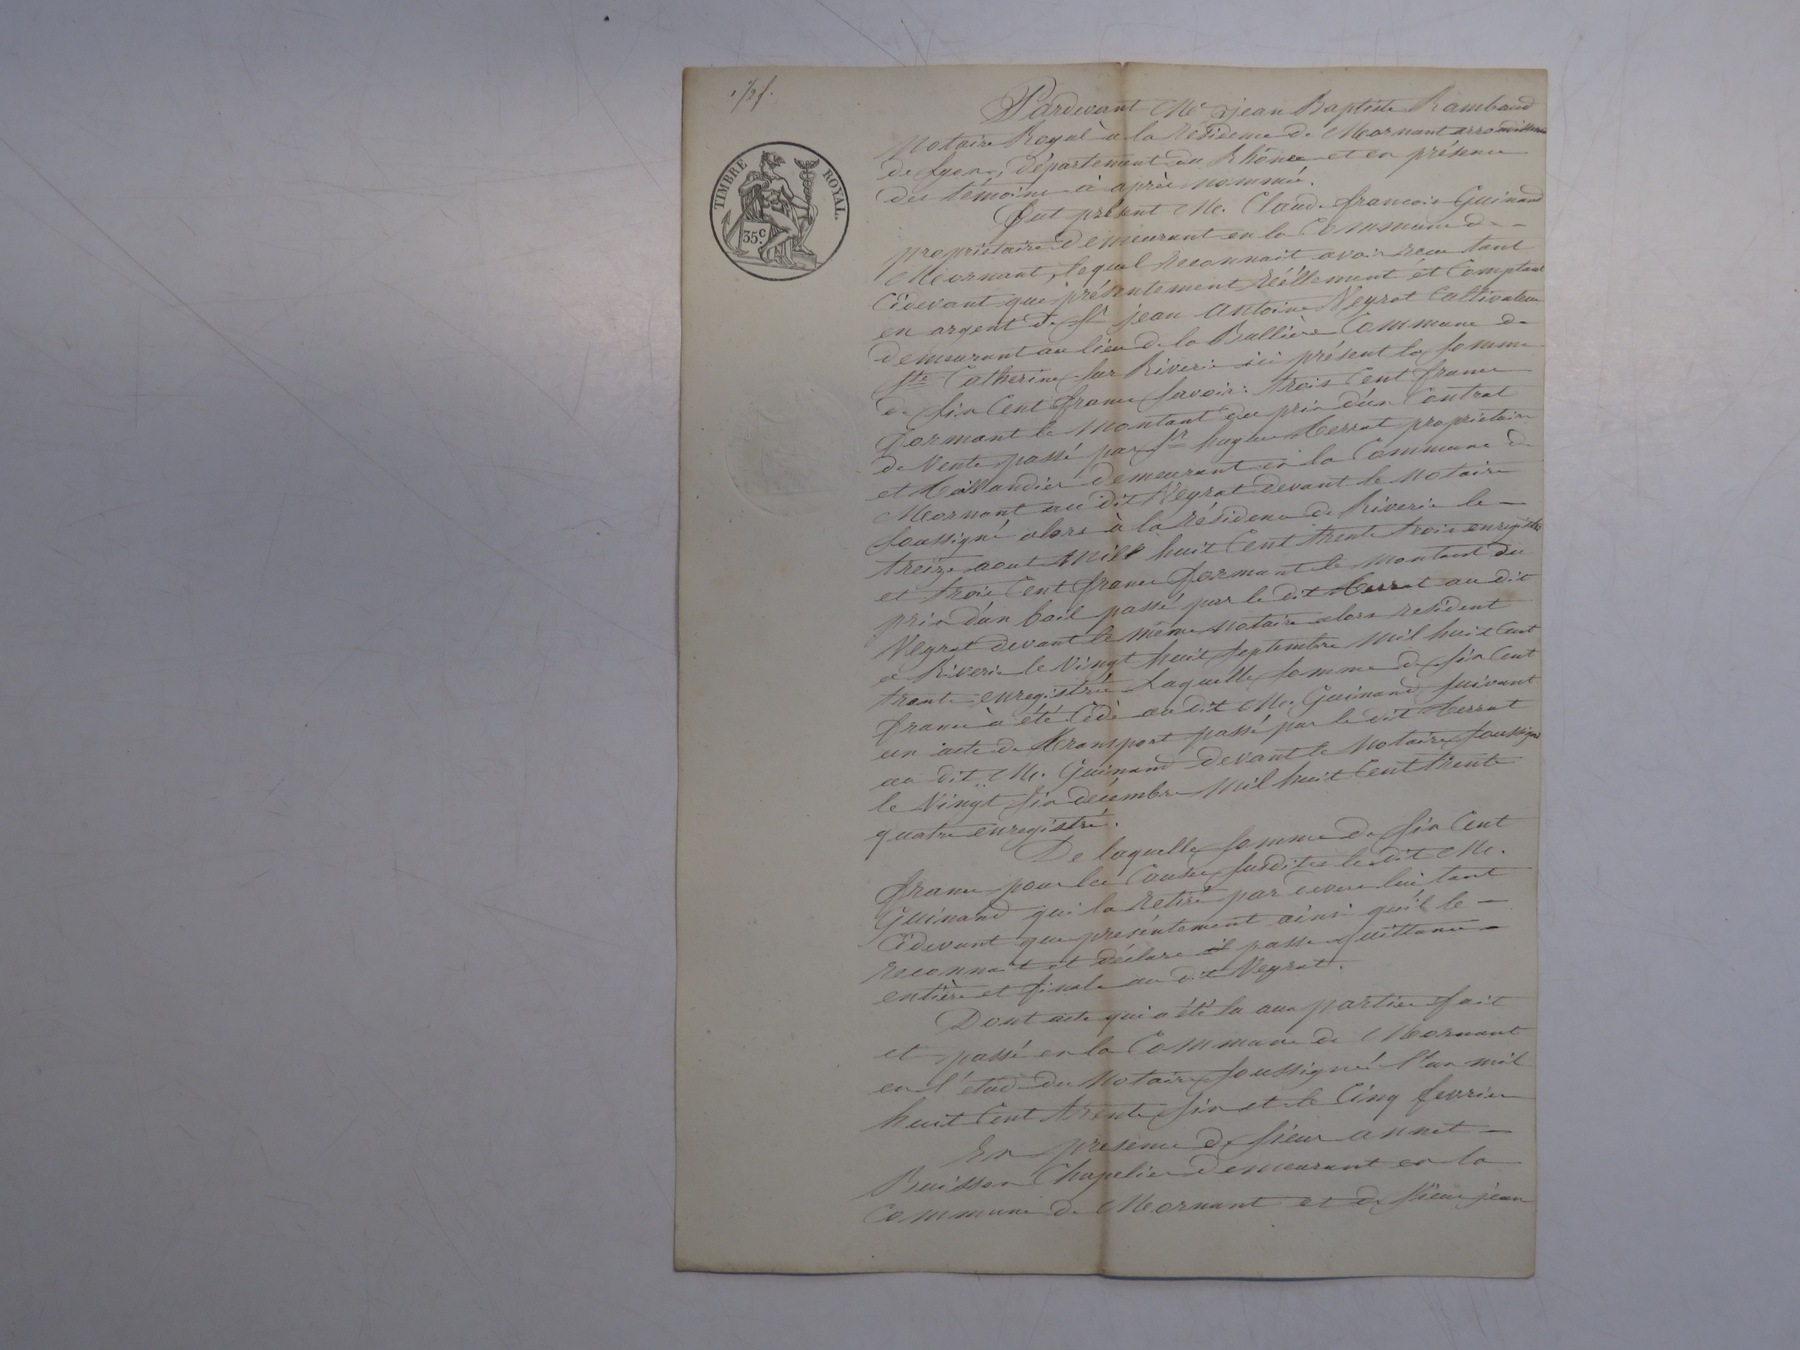 1/2 f.
TIMBRE ROYAL.
35 c.
Pardevant Me jean Baptiste Rambaud
Notaire Royal à la résidence de Mornant arrondissement
de Lyon, département du Rhône et en présence
des témoins ci après nommés.
Fut présent M. Claude françois Guinand
propriétaire demeurant en la Commune de -
Mornant, lequel reconnait avoir reçu tant
Cidevant que présentement réellement et Comptant
en argent de Sr jean Antoine Neyrat Cultivateur
demeurant au lieu de la Bullière Commune de
Ste Catherine sur Riverie ici présent la somme
de six Cent francs savoir: trois Cent francs
formant le montant du prix d'un Contrat
de Vente passé par Sr hugues propriétaire
et demeurant en la Commune de
Mornant au dit Neyrat devant le Notaire
soussigné alors à la résidence de Riverie le -
treize aout mil huit Cent trente trois enregistré
et trois Cent francs formant le montant du
prix d'un bail passé par le dit au dit
Neyrat devant le même Notaire alors résident
à Riverie le Vingt huit septembre mil huit Cent
trente enregistré Laquelle somme de six Cent
francs a été Cédé au dit M. Guinand suivant
un acte de transport passé par le dit
au dit M. Guinand devant le Notaire soussigné
le Vingt six décembre mil huit Cent trente
quatre enregistré.
De laquelle somme de six Cent
francs pour les Causes susdites le dit M.
Guinand qui la retiré par devers lui tant
Cidevant que présentement ainsi qu'il le -
reconnait et déclare il passe quittance -
entière et finale au dit Neyrat.
Dont acte qui a été lu aux parties fait
et passé en la Commune de Mornant
en l'étude du Notaire soussigné l'an mil
huit Cent trente six et le Cinq fevrier
En présence de sieur annet -
Buisson Chapelier demeurant en la
Commune de Mornant et de sieur jean